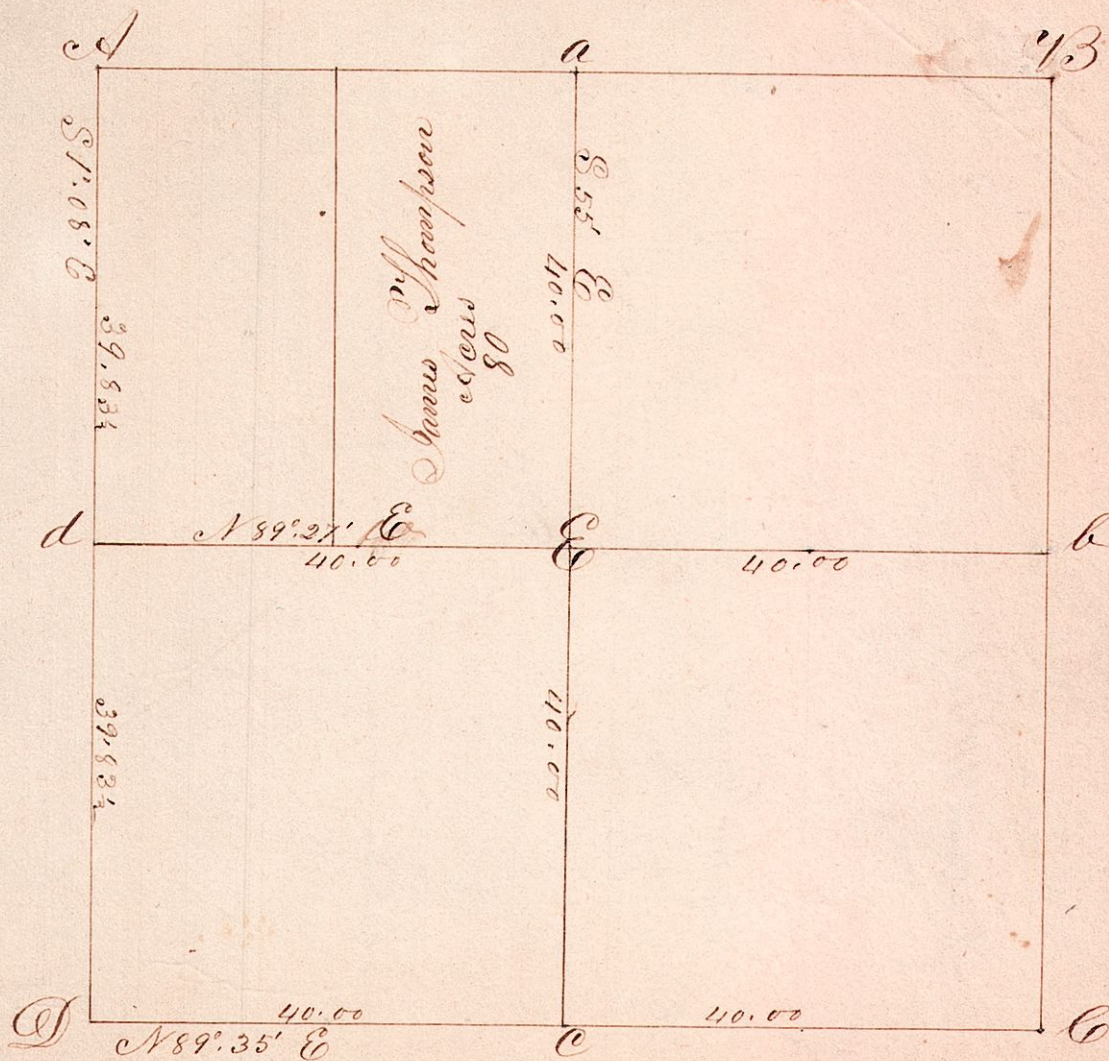 A
a
B
S 1°.08' E
39.83½
James Thompson
Acres
80
S 55' E
40.00
d
N 89°.27' E
40.00
E
40.00
b
39.83½
40.00
D
40.00
N 89°.35' E
c
40.00
C